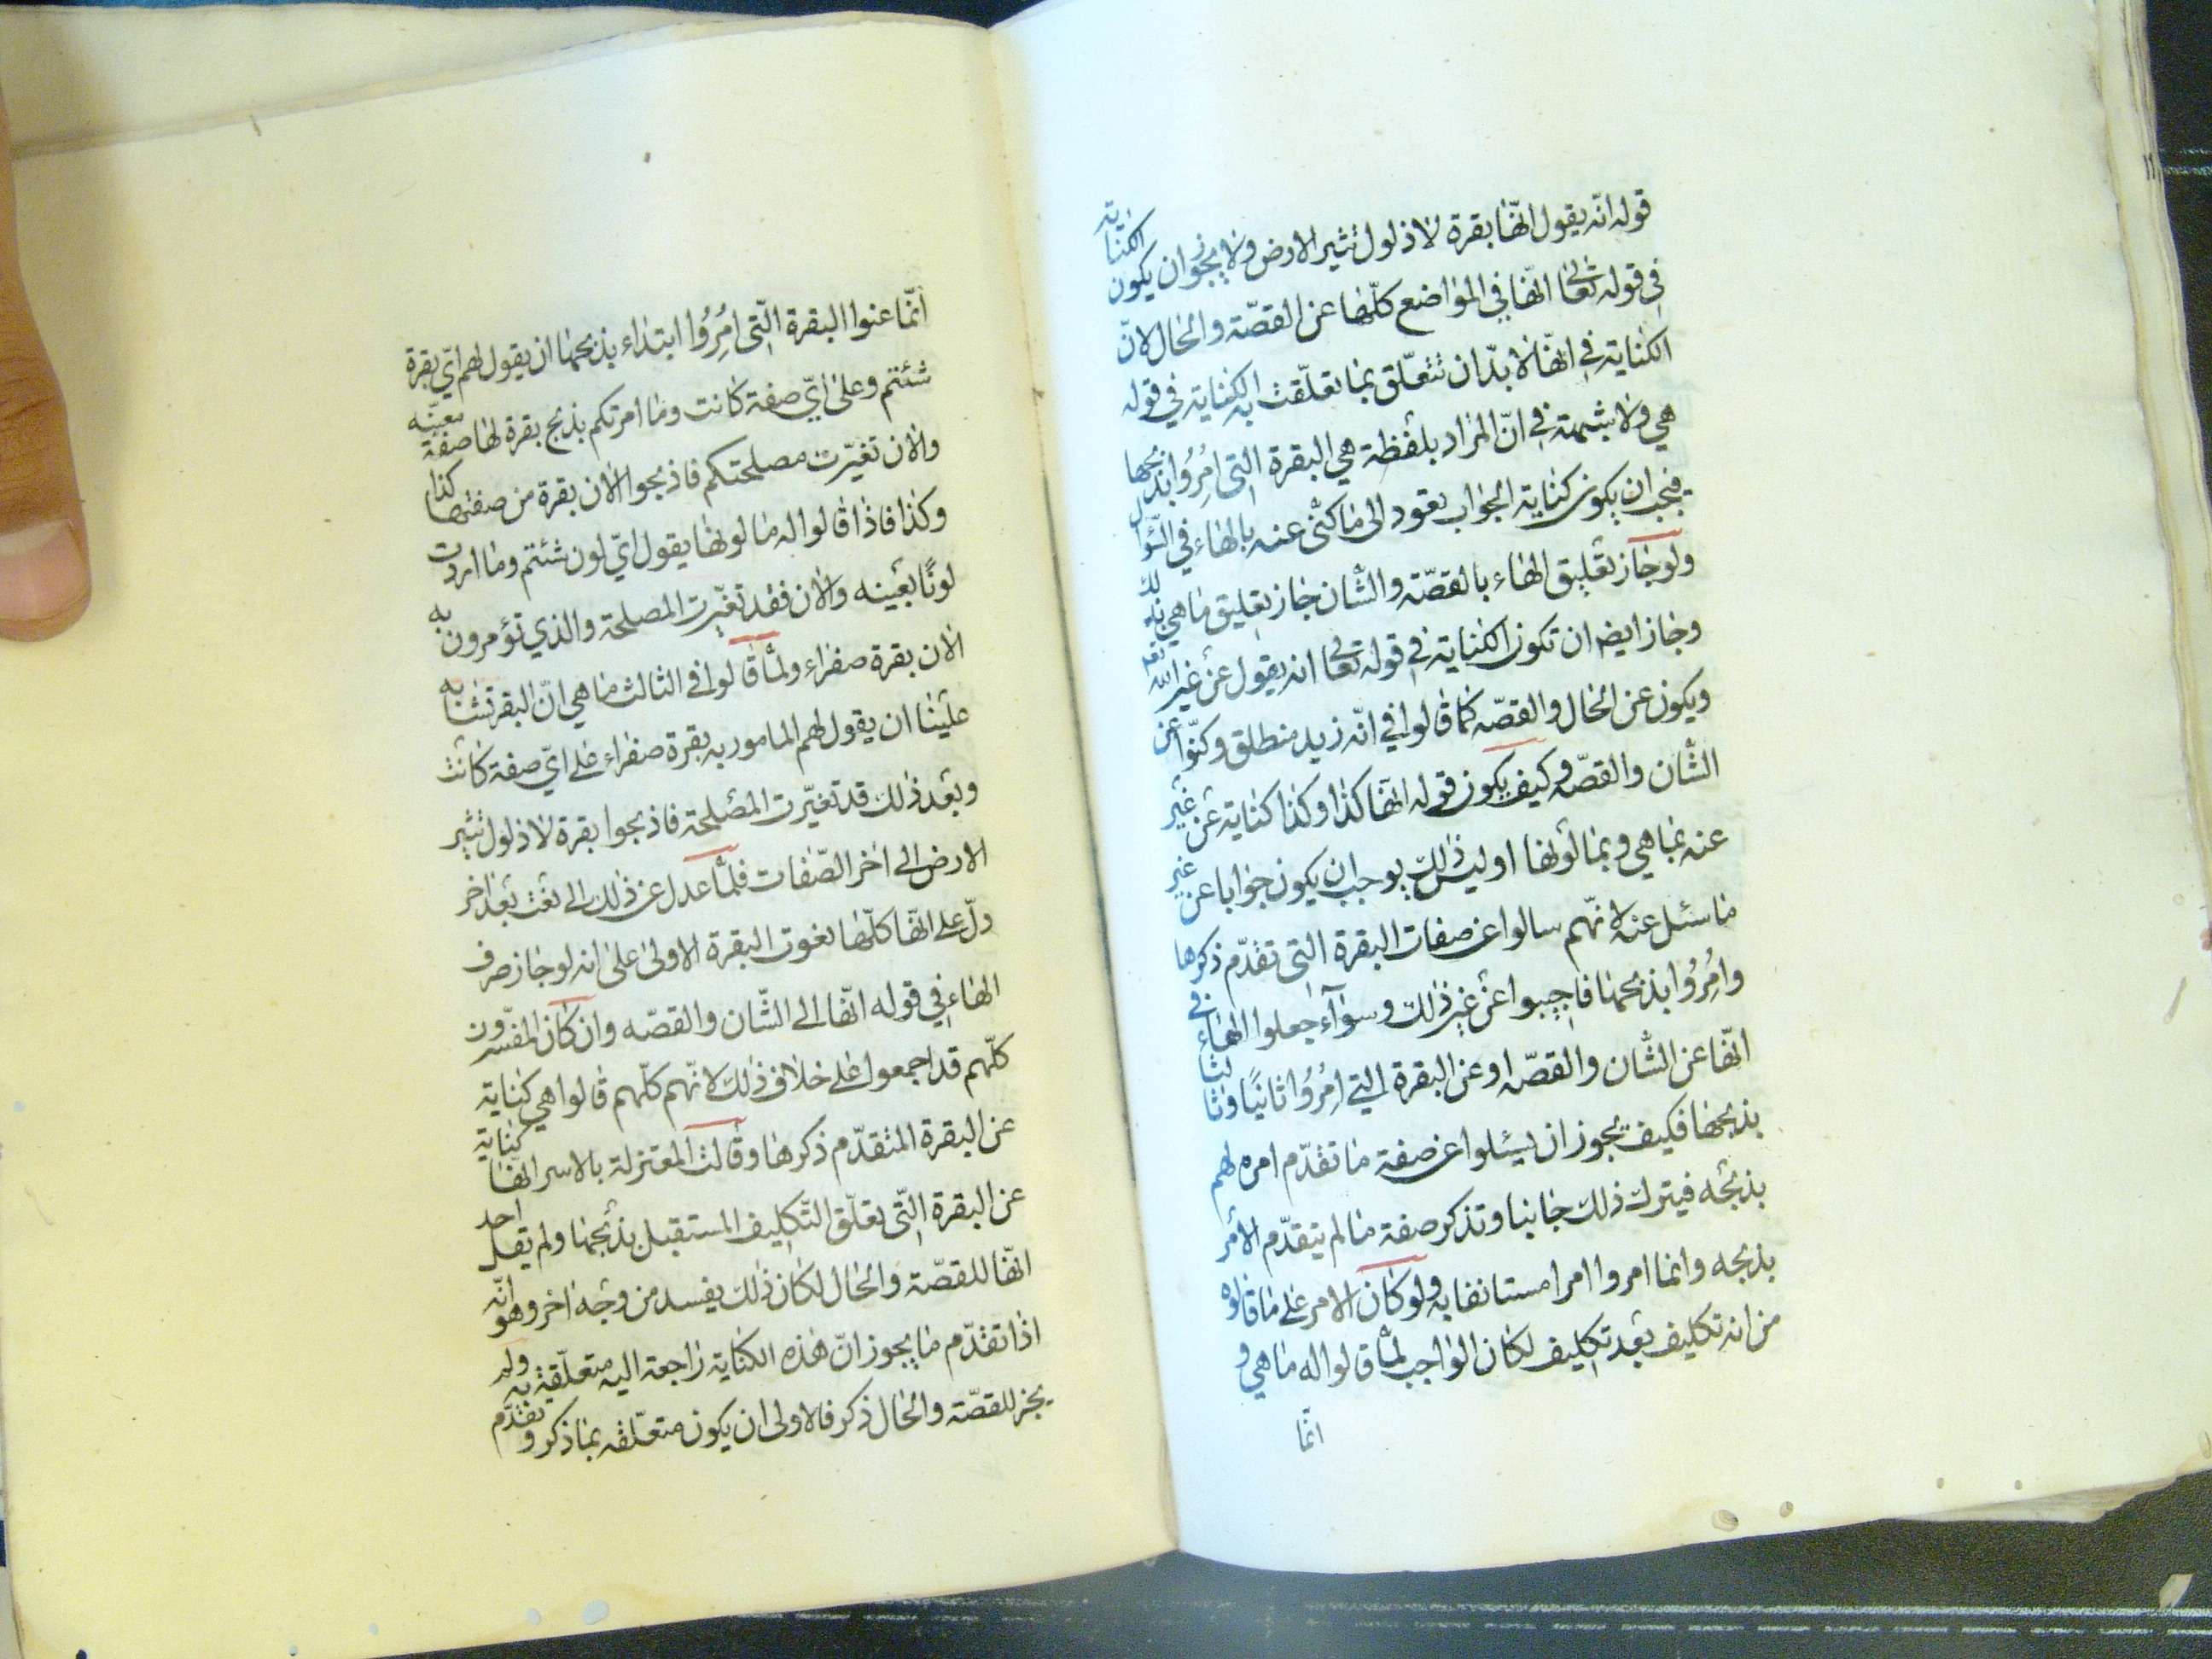 قوله انّه يقول انّها بقرة لا ذلول تثير الارض ولا يجوز ان يكون الكناية
في قوله تعالى انّها في المواضع كلّها عن القصّة والحال لانّ
الكناية في انّها لا بدّ ان تتعلّق بما تعلّقت به الكناية في قوله
هي ولا شبهة في انّ المراد بلفظة هي البقرة التي اُمِرُوا بذبحها
فيجب ان يكون كناية الجواب تعود الى ما كنّى عنه بالهاء في السّؤال
ولو جاز تعليق الهاء بالقصّة والشّان جاز تعليق ما هي بذلك
وجاز ايضا ان تكون الكناية في قوله تعالى انه يقول عن غير الله تعه
ويكون عن الحال والقصّه كما قالوا في انّه زيد منطلق وكنّوا عن
الشّان والقصّه وكيف يكون قوله انّها كذا وكذا كناية عن غير
عنه بما هي وبما لونها او ليس ذلك يوجب ان يكون جوابا عن غير
ما سئل عنه لانّهم سالوا عن صفات البقرة التي تقدّم ذكرها
واُمِرُوا بذبحها فاجيبوا عن غير ذلك وسوآء جعلوا الهاء في
انّها عن الشّان والقصّه او عن البقرة التي اُمِرُوا ثانيًا وثالثا
بذبحها فكيف يجوز ان يسئلوا عن صفة ما تقدّم امره لهم
بذبحه فيترك ذلك جانبا وتذكر صفة ما لم يتقدّم الامر
بذبحه وانما امروا امرا مستانفا به ولو كان الامر على ما قالوه
من انه تكليف بعد تكليف لكان الواجب لمّا قالوا له ما هي و
انّما
انّما عنوا البقرة الّتي اُمِرُوا ابتداء بذبحها ان يقول لهم ايّ بقرة
شئتم وعلى ايّ صفة كانت وما امرتكم بذبح بقرة لها صفة معينّه
والان تغيّرت مصلحتكم فاذبحوا الان بقرة من صفتها كذا
وكذا فاذا قالوا له ما لونها يقول ايّ لون شئتم وما اردت
لونًا بعينه والان فقد تغيّرت المصلحة والذي تؤمرون به
الان بقرة صفراء ولمّا قالوا في الثالث ما هي انّ البقر تشابه
علينا ان يقول لهم المامور به بقرة صفراء على ايّ صفة كانت
وبعد ذلك قد تغيّرت المصلحة فاذبحوا بقرة لا ذلول تثير
الارض الى اخر الصّفات فلمّا عدل عن ذلك الى نعت بعد اخر
دلّ على انّها كلّها نعوت البقرة الاولى على انه لو جاز صرف
الهاء في قوله انّها الى الشّان والقصّه وان كان المفسّرون
كلّهم قد اجمعوا على خلاف ذلك لانّهم كلّهم قالوا هي كناية
عن البقرة المتقدّم ذكرها وقالت المعتزلة بالاسر انّها كناية
عن البقرة الّتي تعلّق التّكليف المستقبل بذبحها ولم يقل احد
انّها للقصّة والحال لكان ذلك يفسد من وجه اخر وهو انّه
اذا تقدّم ما يجوز انّ هذه الكناية راجعة اليه متعلّقة به ولم
يجز للقصّة والحال ذكر فالاولى ان يكون متعلّقه بما ذكر وتقدّم